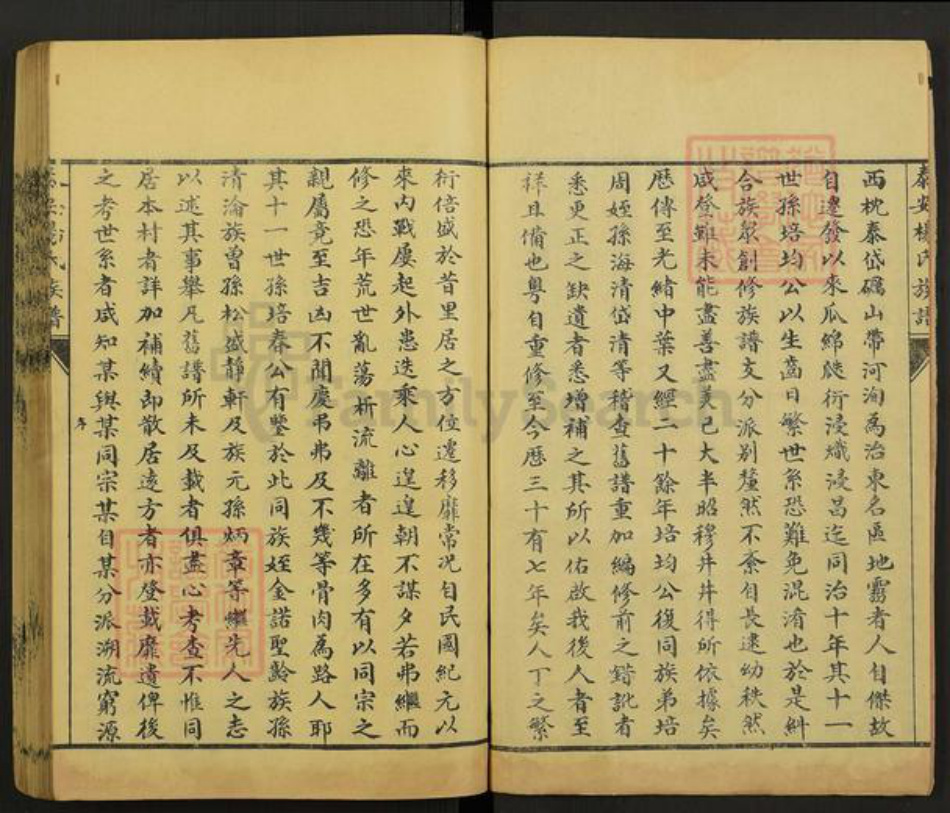 泰安楊氏族譜
西枕泰岱礪山帶河洵為治東名區地靈者人自傑故
自遷發以來瓜綿瓞衍浸熾浸昌迄同治十年其十一
世孫培均公以生齒日繁世系恐難免混淆也於是糾
合族眾創修族譜支分派別釐然不紊自長逮幼秩然
咸登雖未能盡善盡美已大半昭穆井井得所依據矣
歷傳至光緒中葉又經二十餘年培均公復同族弟培
周姪孫海清岱清等稽查舊譜重加編修前之錯訛者
悉更正之缺遺者悉增補之其所以佑啟我後人者至
祥且備也粵自重修至今歷三十有七年矣人丁之繁
衍倍盛於昔里居之方位遷移靡常况自民國紀元以
來內戰屢起外患迭乘人心遑遑朝不謀夕若弗繼而
修之恐年荒世亂蕩析流離者所在多有以同宗之
親屬竟至吉凶不聞慶弔弗及不幾等骨肉為路人耶
其十一世孫培春公有鑒於此同族姪金諾聖齡族孫
清淪族曾孫松盛靜軒及族元孫炳章等繼先人之志
以述其事舉凡舊譜所未及載者俱盡心考查不惟同
居本村者詳加補續即散居遠方者亦登載靡遺俾後
之考世系者咸知某與某同宗某自某分派溯流窮源
序
FamilySearch